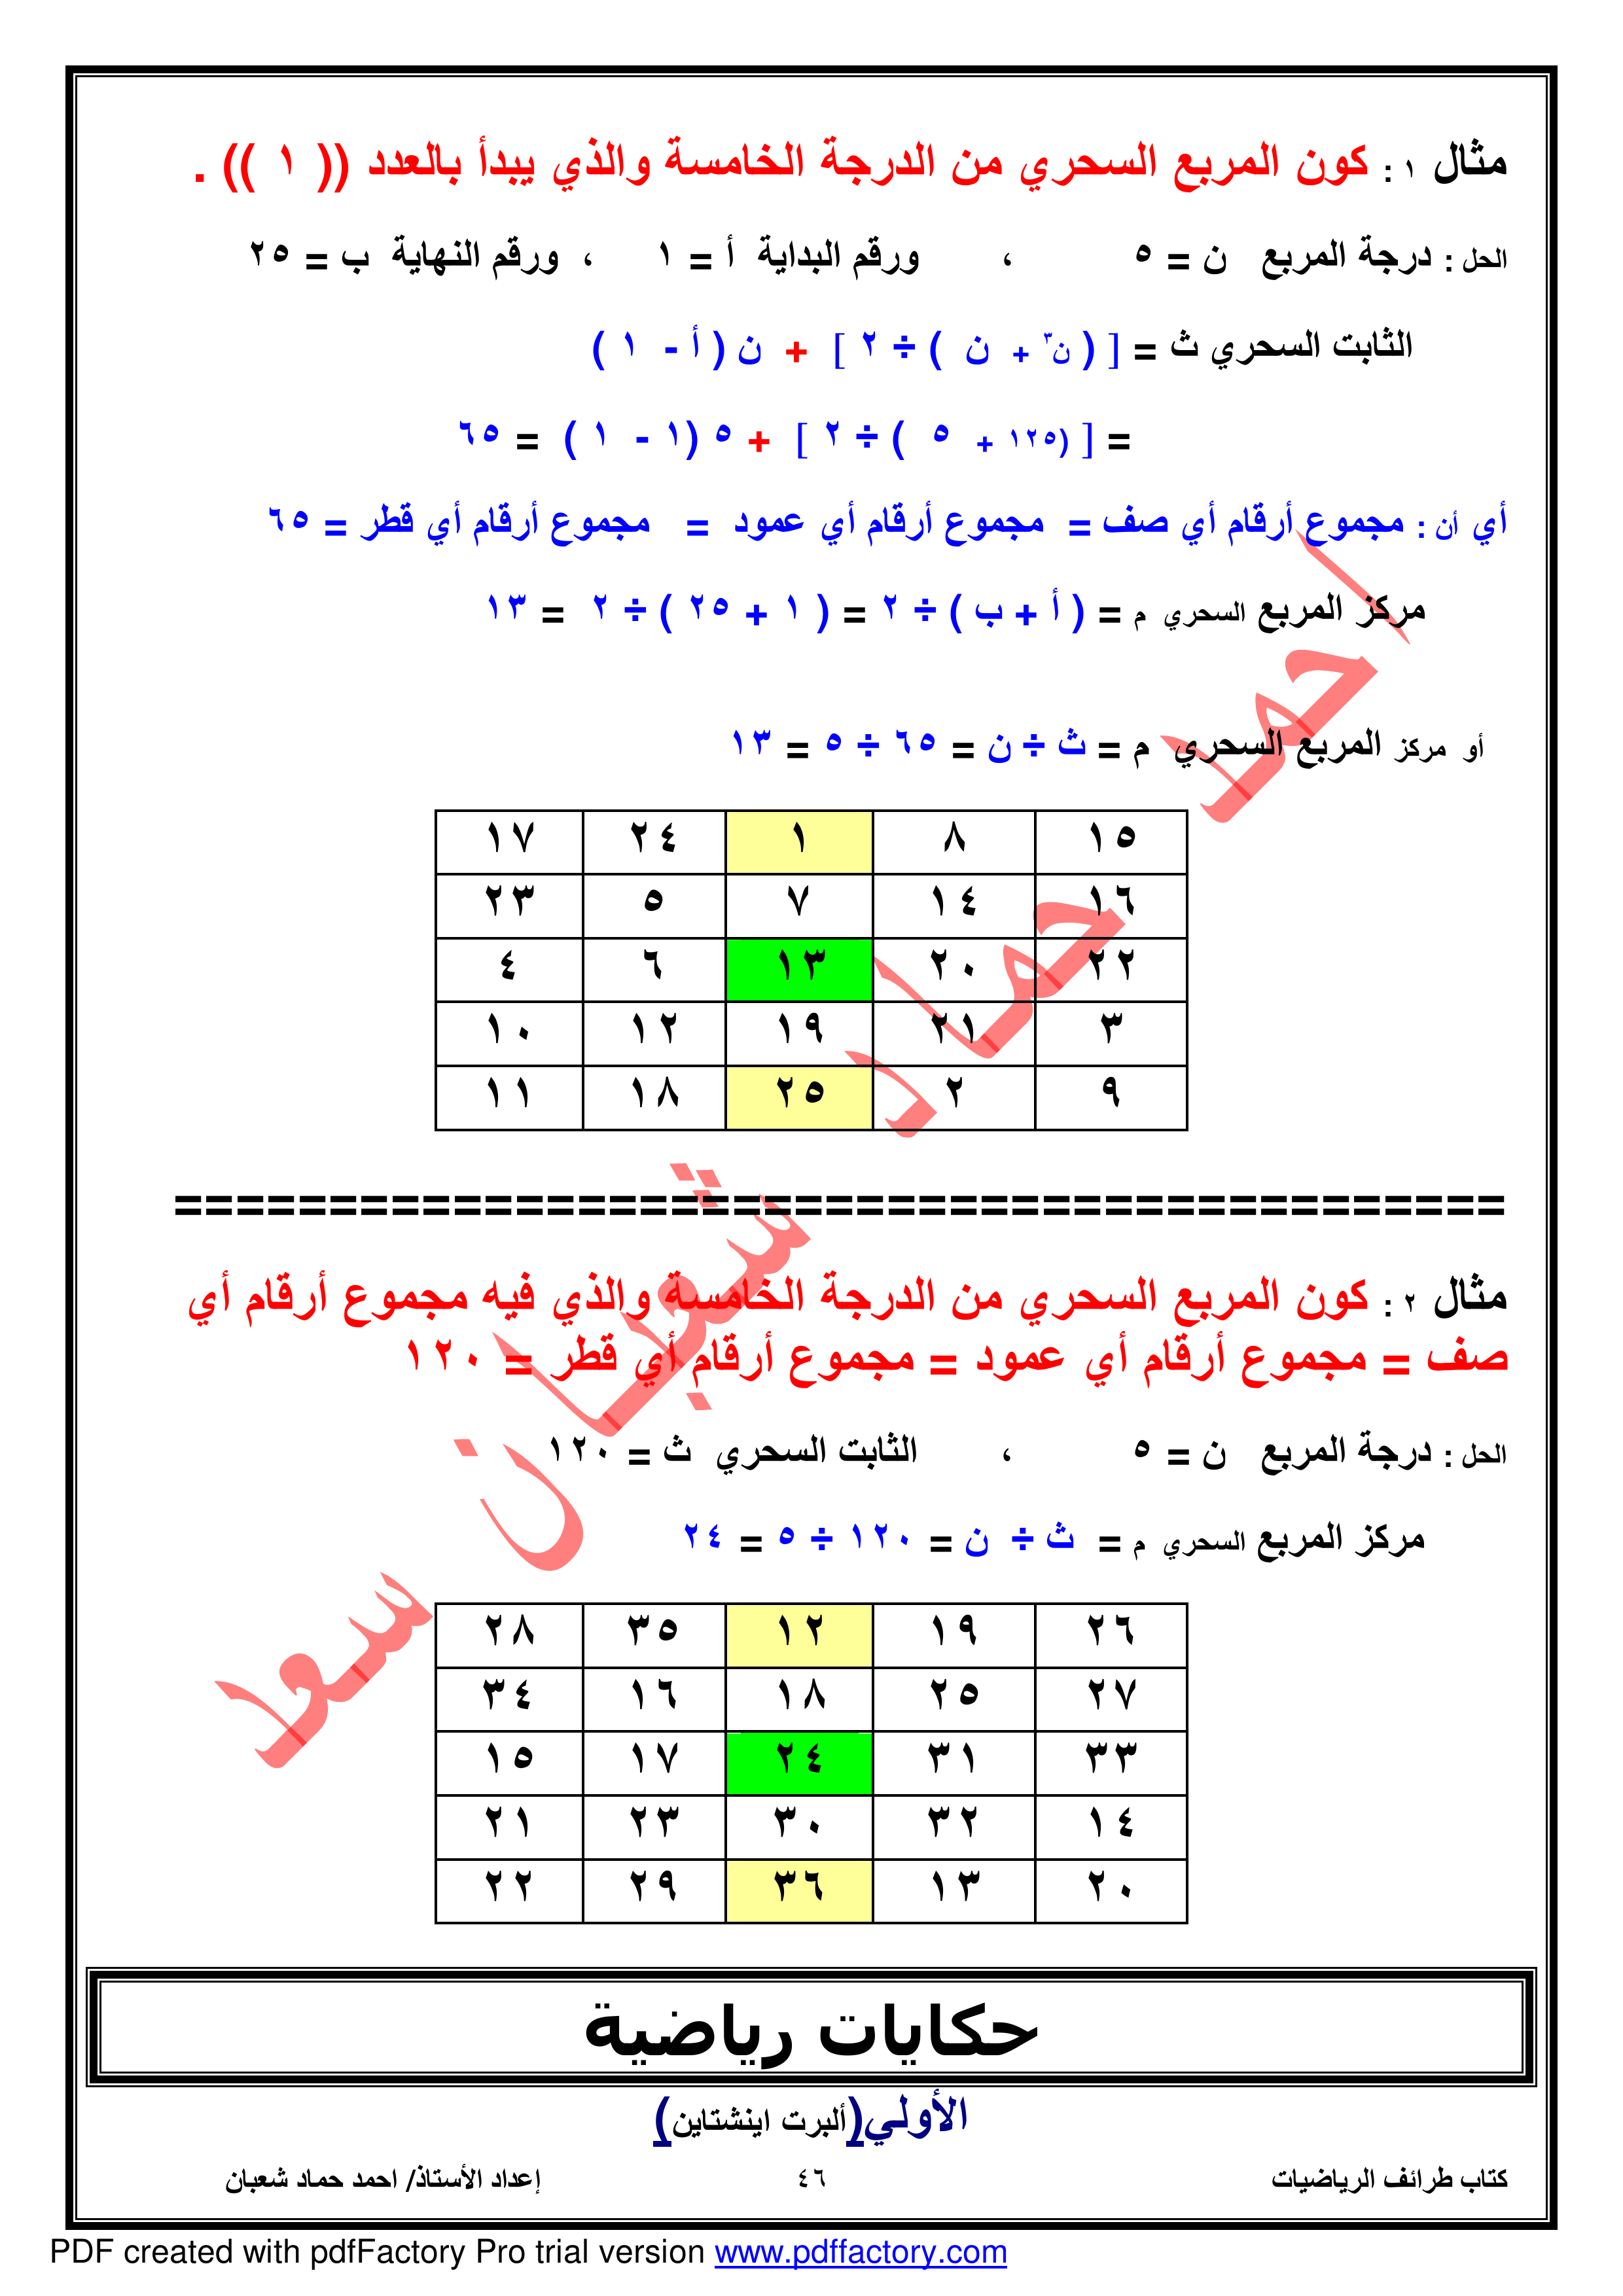 مثال ١ : كون المربع السحري من الدرجة الخامسة والذي يبدأ بالعدد (( ١ )) .
الحل : درجة المربع ن = ٥ ، ورقم البداية أ = ١ ، ورقم النهاية ب = ٢٥
الثابت السحري ث = [ ( ن٣ + ن ) ÷ ٢ ] + ن ( أ - ١ )
= [ (١٢٥ + ٥ ) ÷ ٢ ] + ٥ (١ - ١ ) = ٦٥
أي أن : مجموع أرقام أي صف = مجموع أرقام أي عمود = مجموع أرقام أي قطر = ٦٥
مركز المربع السحري م = ( أ + ب ) ÷ ٢ = ( ١ + ٢٥ ) ÷ ٢ = ١٣
أو مركز المربع السحري م = ث ÷ ن = ٦٥ ÷ ٥ = ١٣
١٥ ٨ ١ ٢٤ ١٧
١٦ ١٤ ٧ ٥ ٢٣
٢٢ ٢٠ ١٣ ٦ ٤
٣ ٢١ ١٩ ١٢ ١٠
٩ ٢ ٢٥ ١٨ ١١
===========================================
مثال ٢ : كون المربع السحري من الدرجة الخامسة والذي فيه مجموع أرقام أي
صف = مجموع أرقام أي عمود = مجموع أرقام أي قطر = ١٢٠
الحل : درجة المربع ن = ٥ ، الثابت السحري ث = ١٢٠
مركز المربع السحري م = ث ÷ ن = ١٢٠ ÷ ٥ = ٢٤
٢٦ ١٩ ١٢ ٣٥ ٢٨
٢٧ ٢٥ ١٨ ١٦ ٣٤
٣٣ ٣١ ٢٤ ١٧ ١٥
١٤ ٣٢ ٣٠ ٢٣ ٢١
٢٠ ١٣ ٣٦ ٢٩ ٢٢
احمد حماد شعبان سعد
حكايات رياضية
الأولي(ألبرت اينشتاين)
كتاب طرائف الرياضيات ٤٦ إعداد الأستاذ/ احمد حماد شعبان
PDF created with pdfFactory Pro trial version www.pdffactory.com